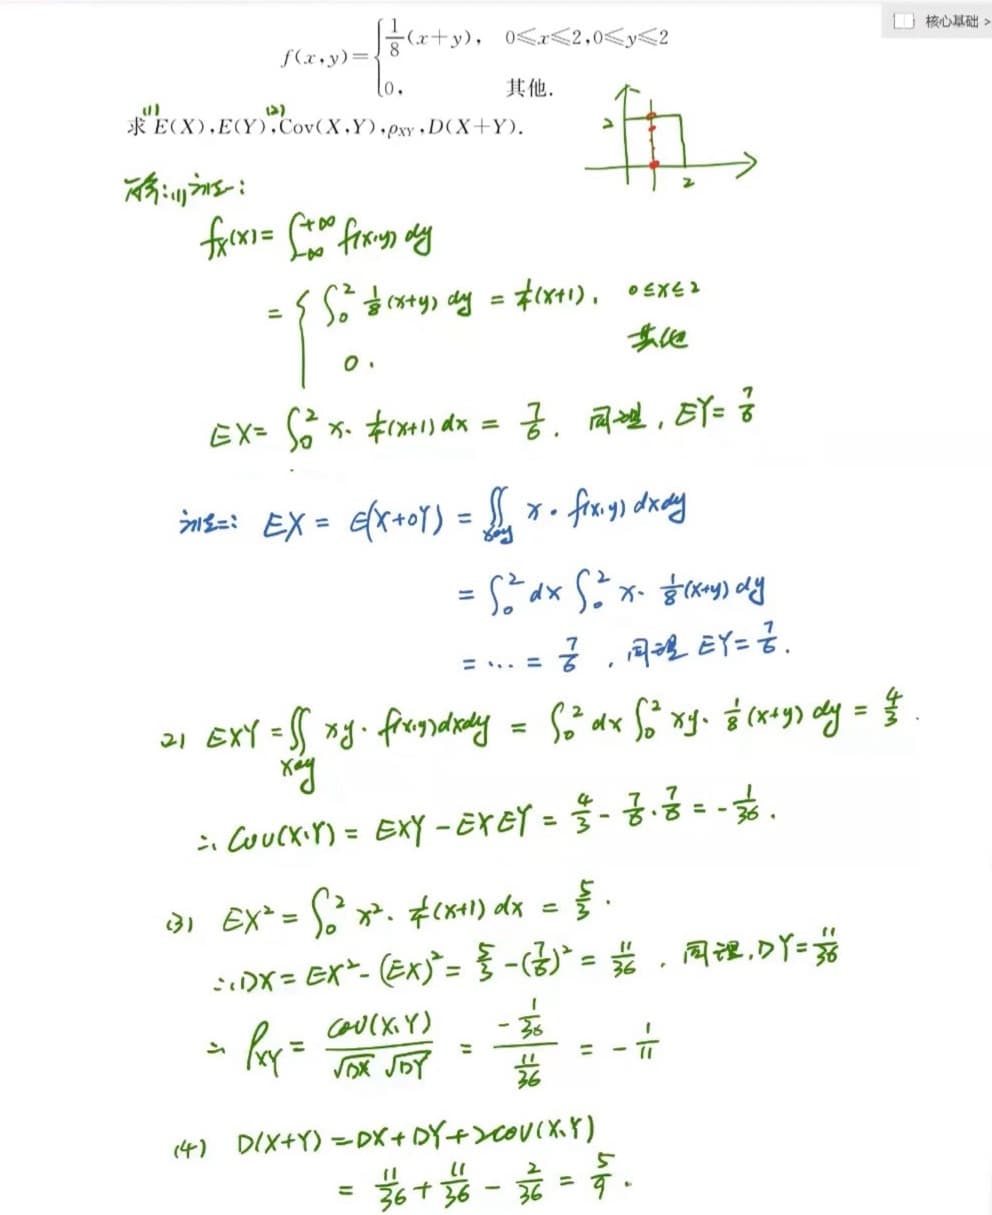 核心基础 >
f(x,y)={1/8(x+y), 0≤x≤2,0≤y≤2
0, 其他.
(1) (2)
求E(X),E(Y),Cov(X,Y),ρXY,D(X+Y).
2
2
解:(1)方法一:
fX(x)=∫_{-∞}^{+∞} f(x,y) dy
={∫_0^2 1/8(x+y) dy = 1/4(x+1), 0≤x≤2
0. 其他
EX=∫_0^2 x·1/4(x+1)dx = 7/6. 同理,EY=7/6
方法二: EX = E(X+0Y) = ∬_{xoy} x·f(x,y) dxdy
=∫_0^2 dx ∫_0^2 x·1/8(x+y) dy
=…=7/6,同理 EY=7/6.
2) EXY=∬_{xoy} xy·f(x,y)dxdy = ∫_0^2 dx ∫_0^2 xy·1/8(x+y) dy = 4/3.
∴ Cov(X,Y) = EXY-EXEY = 4/3-7/6·7/6 = -1/36.
(3) EX²=∫_0^2 x²·1/4(x+1) dx = 5/3.
∴DX=EX²-(EX)²=5/3-(7/6)²=11/36. 同理,DY=11/36
∴ ρXY=COV(X,Y)/(√DX √DY) = (-1/36)/(11/36) = -1/11
(4) D(X+Y)=DX+DY+2COV(X,Y)
=11/36+11/36-2/36=5/9.